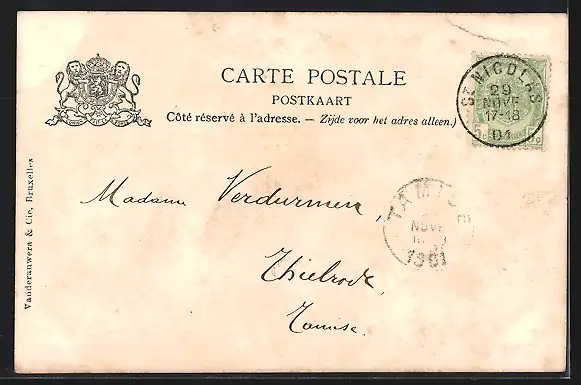 CARTE POSTALE
POSTKAART
Côté réservé à l'adresse. — Zijde voor het adres alleen.)
ST NICOLAS
29
NOVE
17-18
01
Madame Verdurmen,
TAMISE
NOVE
1901
Thielrode,
Tamise.
Vanderauwera & Cie, Bruxelles